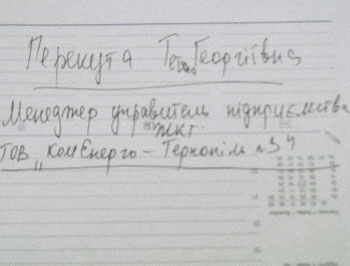 Перекута Тетяна Георгіївна
Менеджер управитель підприємства
ЖКГ
ТОВ "КомЕнерго - Тернопіль №3"